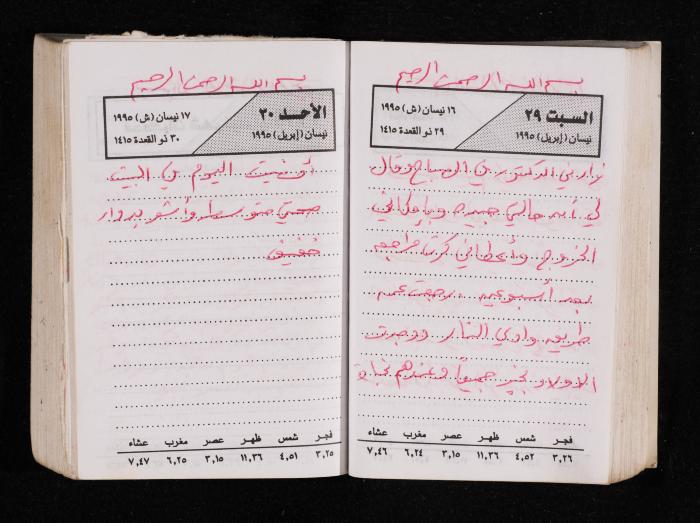 بسم الله الرحمن الرحيم
السبت ٢٩
نيسان (إبريل) ١٩٩٥
١٦ نيسان (ش) ١٩٩٥
٢٩ ذو القعدة ١٤١٥
زارني الدكتور في الصباح وقال
لي أنه حالتي جيده وبإمكاني
الخروج وأعطاني كرت مراجعه
بعد أسبوعين رجعت عن
طريق وادي النار ووجدت
الاولاد بخير جميعاً وعندهم
فجر شمس ظهر عصر مغرب عشاء
٣,٢٦ ٤,٥٢ ١١,٣٦ ٣,١٥ ٦,٢٤ ٧,٤٦
بسم الله الرحمن الرحيم
الأحد ٣٠
نيسان (إبريل) ١٩٩٥
١٧ نيسان (ش) ١٩٩٥
٣٠ ذو القعدة ١٤١٥
اليوم في البيت
صحتي متوسطه وأشعر بدوار
خفيف
فجر شمس ظهر عصر مغرب عشاء
٣,٢٥ ٤,٥١ ١١,٣٦ ٣,١٥ ٦,٢٥ ٧,٤٧